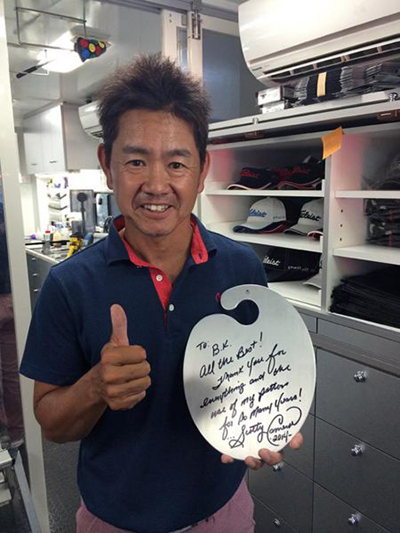 Titleist
Titleist
Titleist
To: B.K.
All the Best!
Thank You for
everything and the
use of my putters
for so many years!
...Scotty Cameron
2014